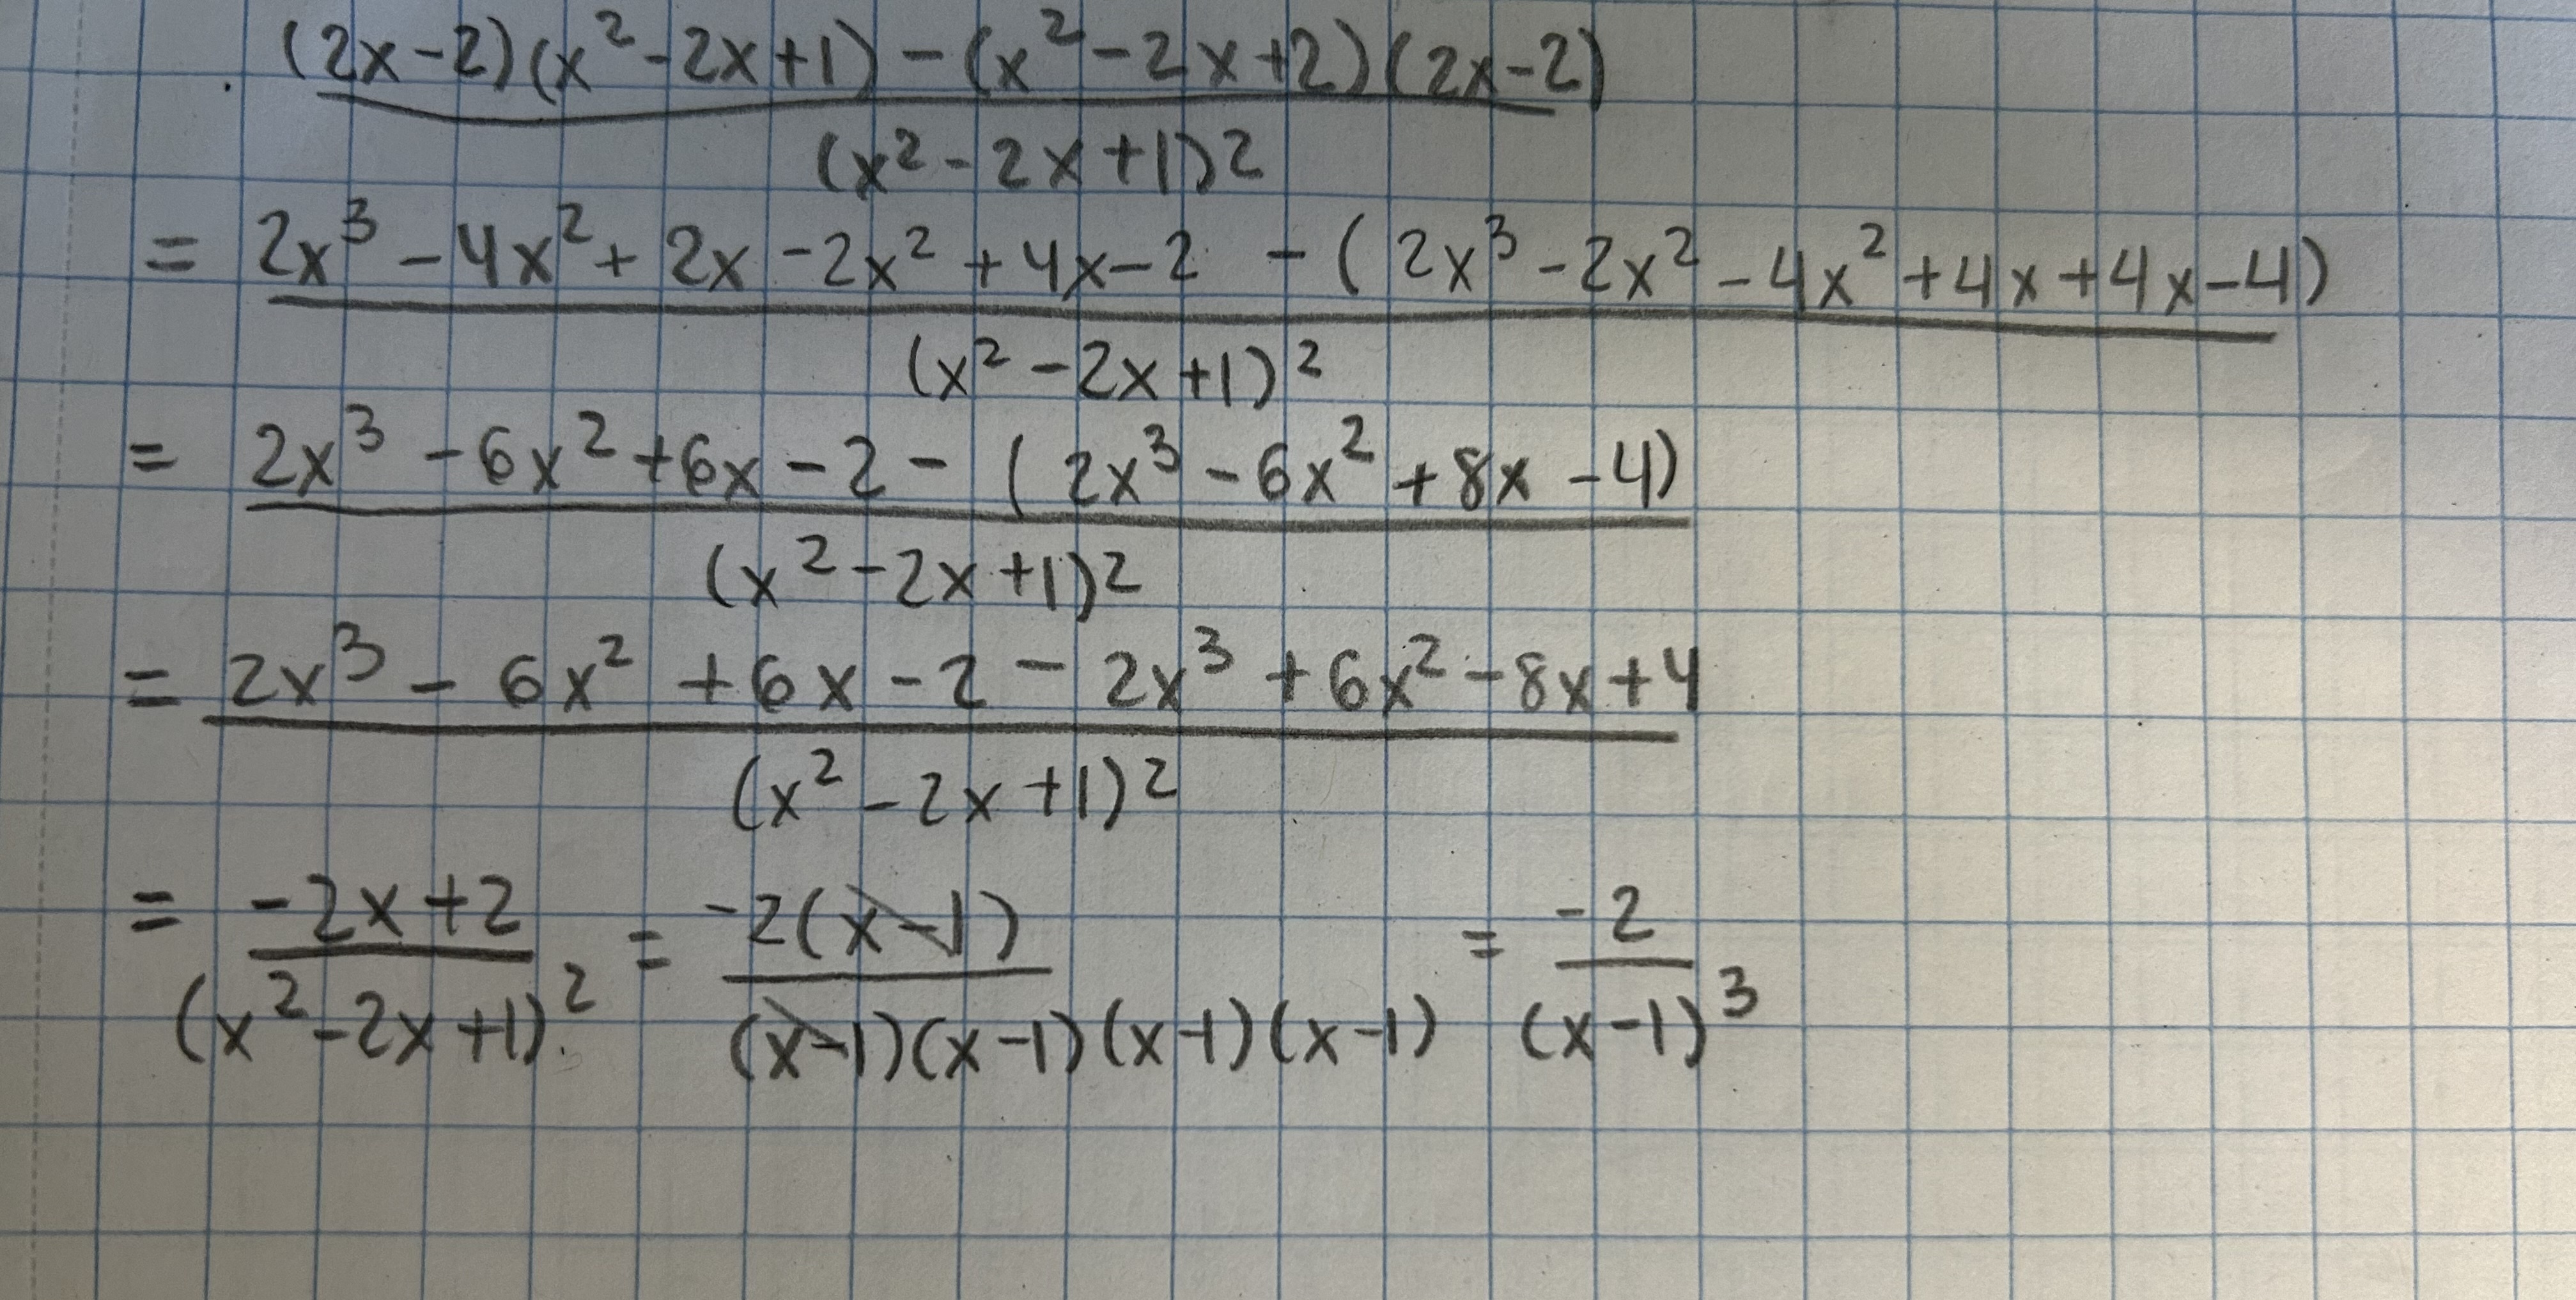 (2x-2)(x²-2x+1) - (x²-2x+2)(2x-2)
(x²-2x+1)2
= 2x³ - 4x² + 2x - 2x² + 4x - 2 - (2x³ - 2x² - 4x² + 4x + 4x - 4)
(x² - 2x + 1)²
= 2x³ - 6x² + 6x - 2 - (2x³ - 6x² + 8x - 4)
(x² - 2x + 1)2
= 2x³ - 6x² + 6x - 2 - 2x³ + 6x² - 8x + 4
(x² - 2x + 1)2
= -2x+2 = -2(x-1) = -2
(x²-2x+1)² (x-1)(x-1)(x-1)(x-1) (x-1)³